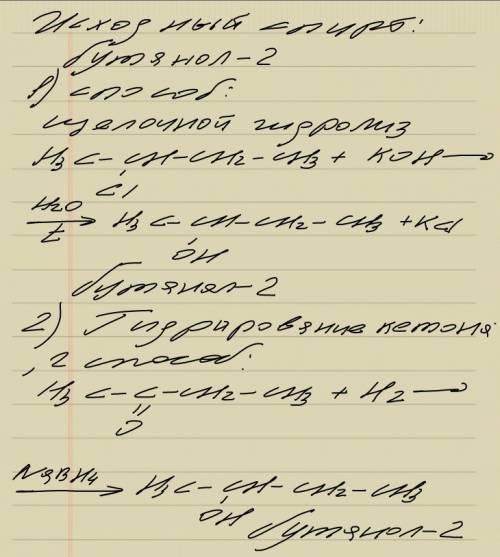 Исходный спирт:
бутанол-2
1) способ:
щелочной гидролиз
H3C-CH-CH2-CH3 + KOH →
Cl
H2O
t → H3C-CH-CH2-CH3 + KCl
OH
бутанол-2
2) Гидрирование кетона
, 2 способ:
H3C-C-CH2-CH3 + H2 →
||
O
NaBH4 → H3C-CH-CH2-CH3
OH бутанол-2